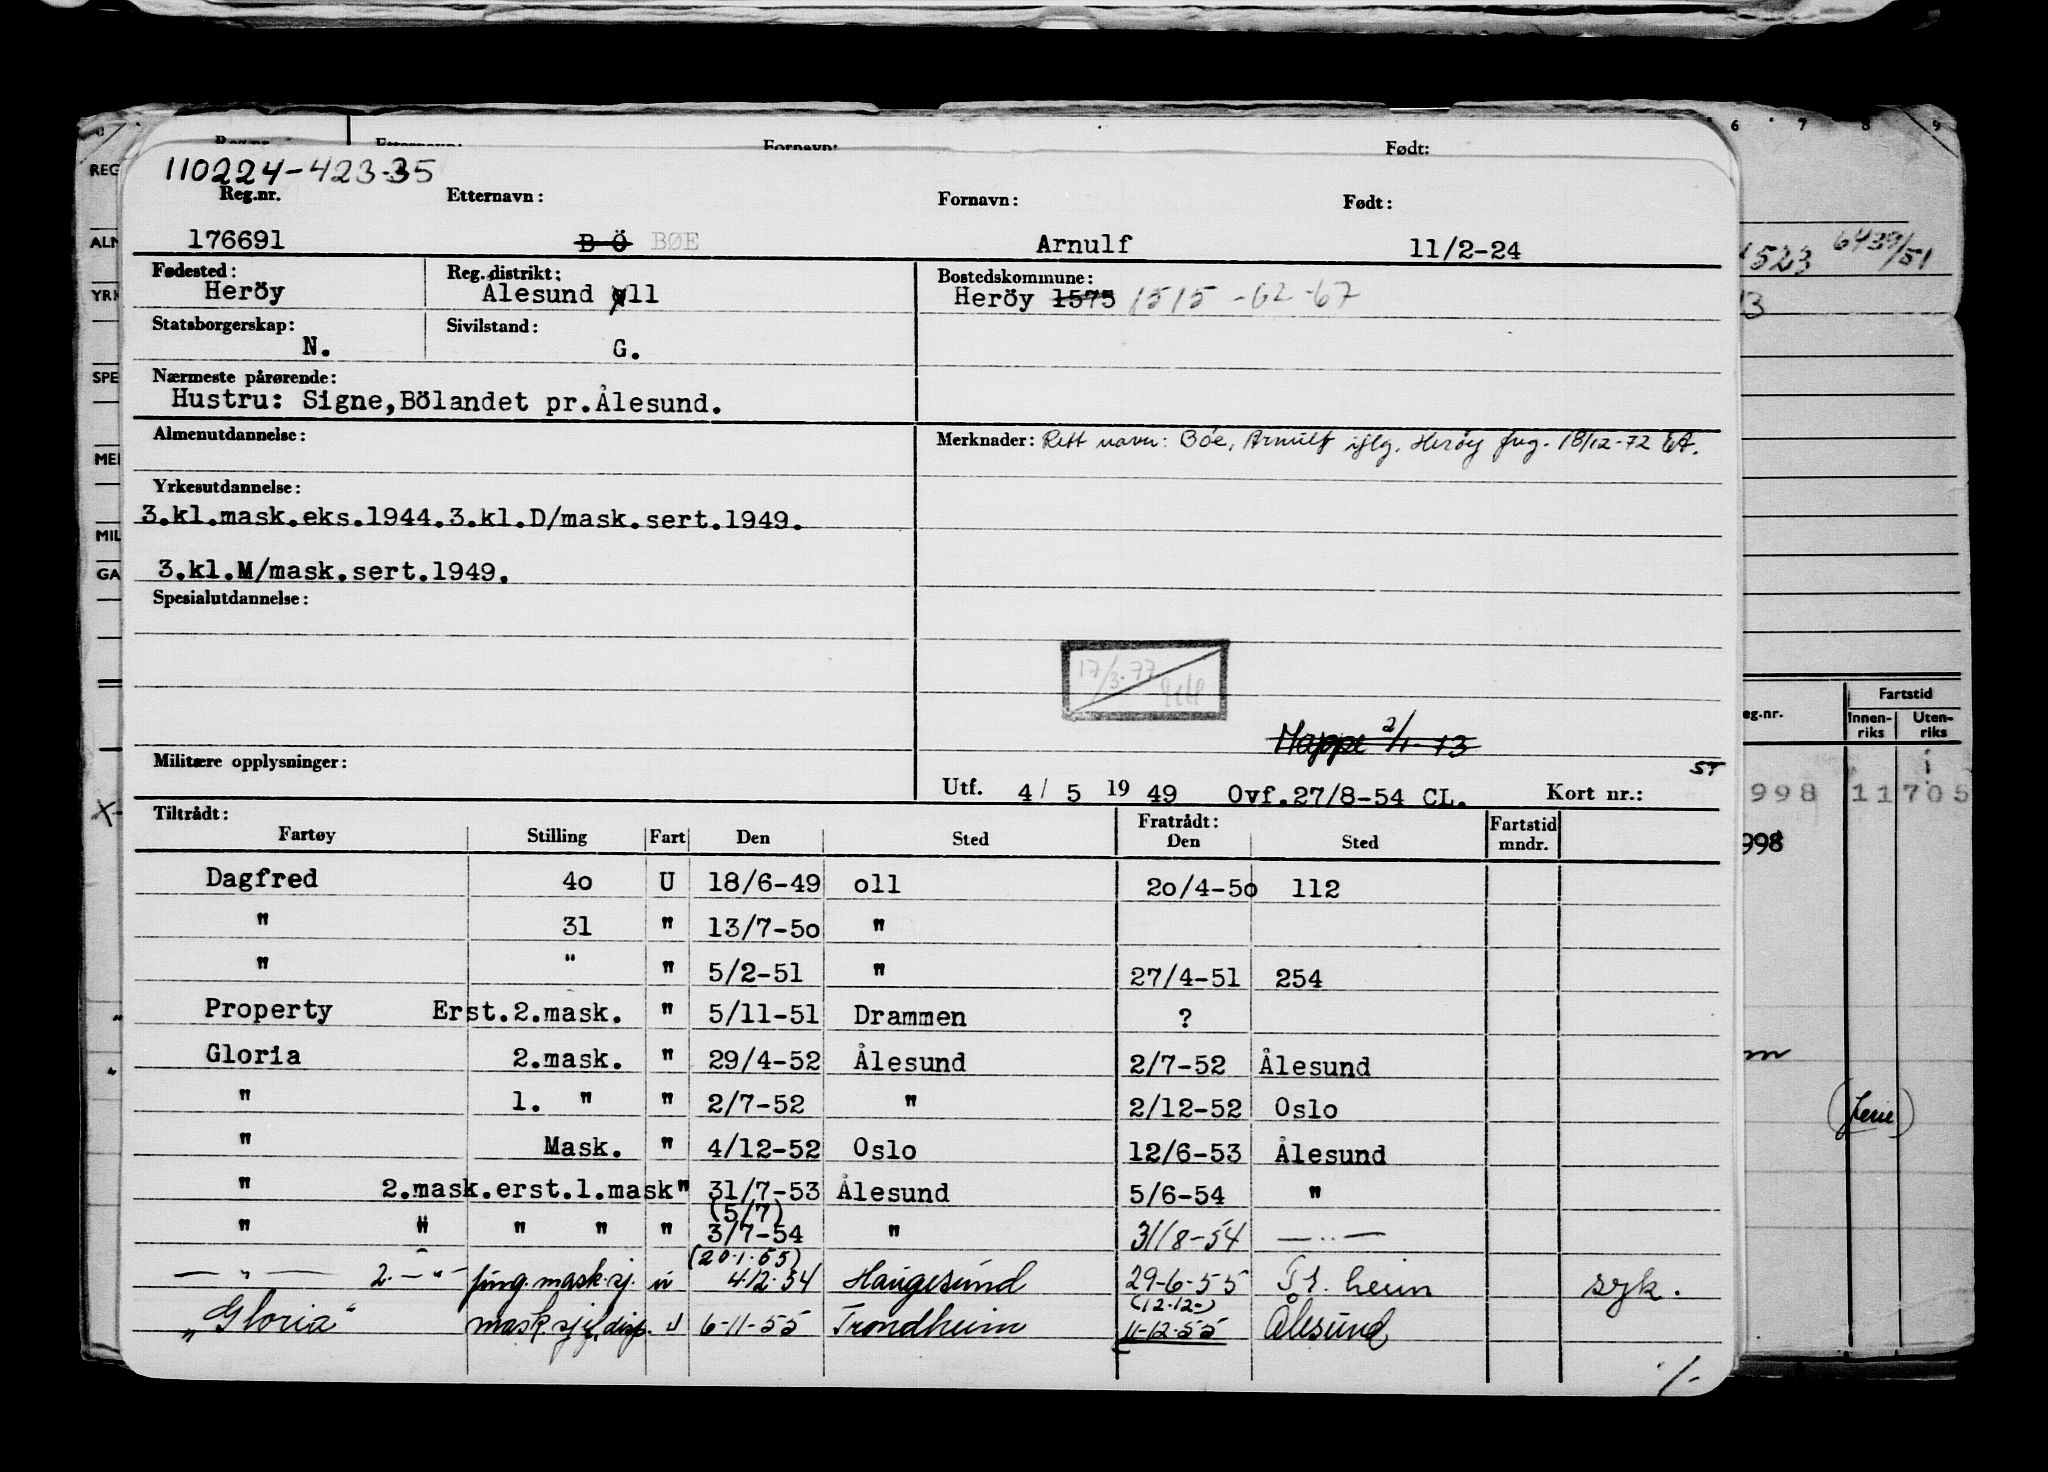 Reg.nr. Etternavn: Fornavn: Født:
110224-423-35
Reg.nr. Etternavn: Fornavn: Født:
176691 B Ö BØE Arnulf 11/2-24
Fødested: Reg.distrikt: Bostedskommune:
Heröy Ålesund oll Heröy 1575 1515 -62-67
Statsborgerskap: Sivilstand:
N. G.
Nærmeste pårørende:
Hustru: Signe,Bölandet pr.Ålesund.
Almenutdannelse: Merknader: Rett navn: Bóe, Arnulf iflg. Heröy fng. 18/12-72 EA.
Yrkesutdannelse:
3.kl.mask.eks.1944.3.kl.D/mask.sert.1949.
3.kl.M/mask.sert.1949.
Spesialutdannelse:
17/3-77
Mappe 2/1-73
Militære opplysninger: ST
Utf. 4/ 5 19 49 Ovf.27/8-54 CL. Kort nr.:
Tiltrådt: Fratrådt: Fartstid
Fartøy Stilling Fart Den Sted Den Sted mndr.
Dagfred 4o U 18/6-49 oll 2o/4-5o 112
" 31 " 13/7-5o "
" " " 5/2-51 " 27/4-51 254
Property Erst.2.mask. " 5/11-51 Drammen ?
Gloria 2.mask. " 29/4-52 Ålesund 2/7-52 Ålesund
" 1. " " 2/7-52 " 2/12-52 Oslo
" Mask. " 4/12-52 Oslo 12/6-53 Ålesund
" 2.mask.erst.1.mask" 31/7-53 Ålesund 5/6-54 "
(5/7)
" " " " " 3/7-54 " 31/8-54 — " —
(20.1.55)
— " — 2. — " — fung.mask.sj. u 4.12.54 Haugesund 29-6-55 Tr.heim syk.
(12.12-)
"Gloria" mask.sj.f.disp. u 6-11-55 Trondheim 11-12-55 Ålesund
/-
6 7 8 9
REG
ALM
YRK
SPE
MIL
GA
1523 6439/51
13
eg.nr. Fartstid
Innen-riks Uten-riks
998 11705
998
(ferie)